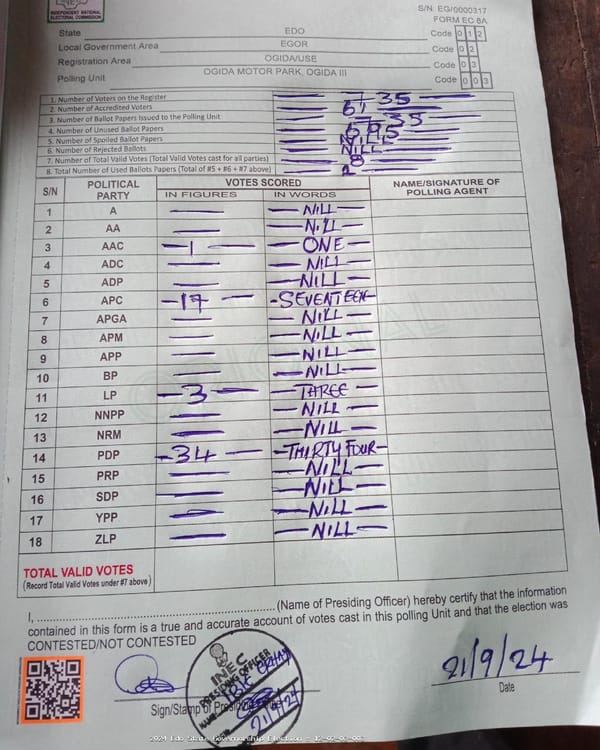 INDEPENDENT NATIONAL
ELECTORAL COMMISSION
S/N: EG/0000317
FORM EC 8A
State EDO Code 0 1 2
Local Government Area EGOR Code 0 2
Registration Area OGIDA/USE Code 0 3
Polling Unit OGIDA MOTOR PARK, OGIDA III Code 0 0 3
1. Number of Voters on the Register 735
2. Number of Accredited Voters 61
3. Number of Ballot Papers Issued to the Polling Unit 735
4. Number of Unused Ballot Papers
5. Number of Spoiled Ballot Papers NILL
6. Number of Rejected Ballots NILL
7. Number of Total Valid Votes (Total Valid Votes cast for all parties)
8. Total Number of Used Ballots Papers (Total of #5 + #6 + #7 above)
S/N POLITICAL PARTY VOTES SCORED NAME/SIGNATURE OF POLLING AGENT
IN FIGURES IN WORDS
1 A NILL
2 AA NILL
3 AAC 1 ONE
4 ADC NILL
5 ADP NILL
6 APC 17 SEVENTEEN
7 APGA NILL
8 APM NILL
9 APP NILL
10 BP NILL
11 LP 3 THREE
12 NNPP NILL
13 NRM NILL
14 PDP 34 THIRTY FOUR
15 PRP NILL
16 SDP NILL
17 YPP NILL
18 ZLP NILL
TOTAL VALID VOTES
(Record Total Valid Votes under #7 above)
I, ............................................................(Name of Presiding Officer) hereby certify that the information
contained in this form is a true and accurate account of votes cast in this polling Unit and that the election was
CONTESTED/NOT CONTESTED
INEC
PRESIDING OFFICER
21/9/24
21/9/24
Sign/Stamp of Date
2024 Edo State Governorship Election - 12-02-03-003